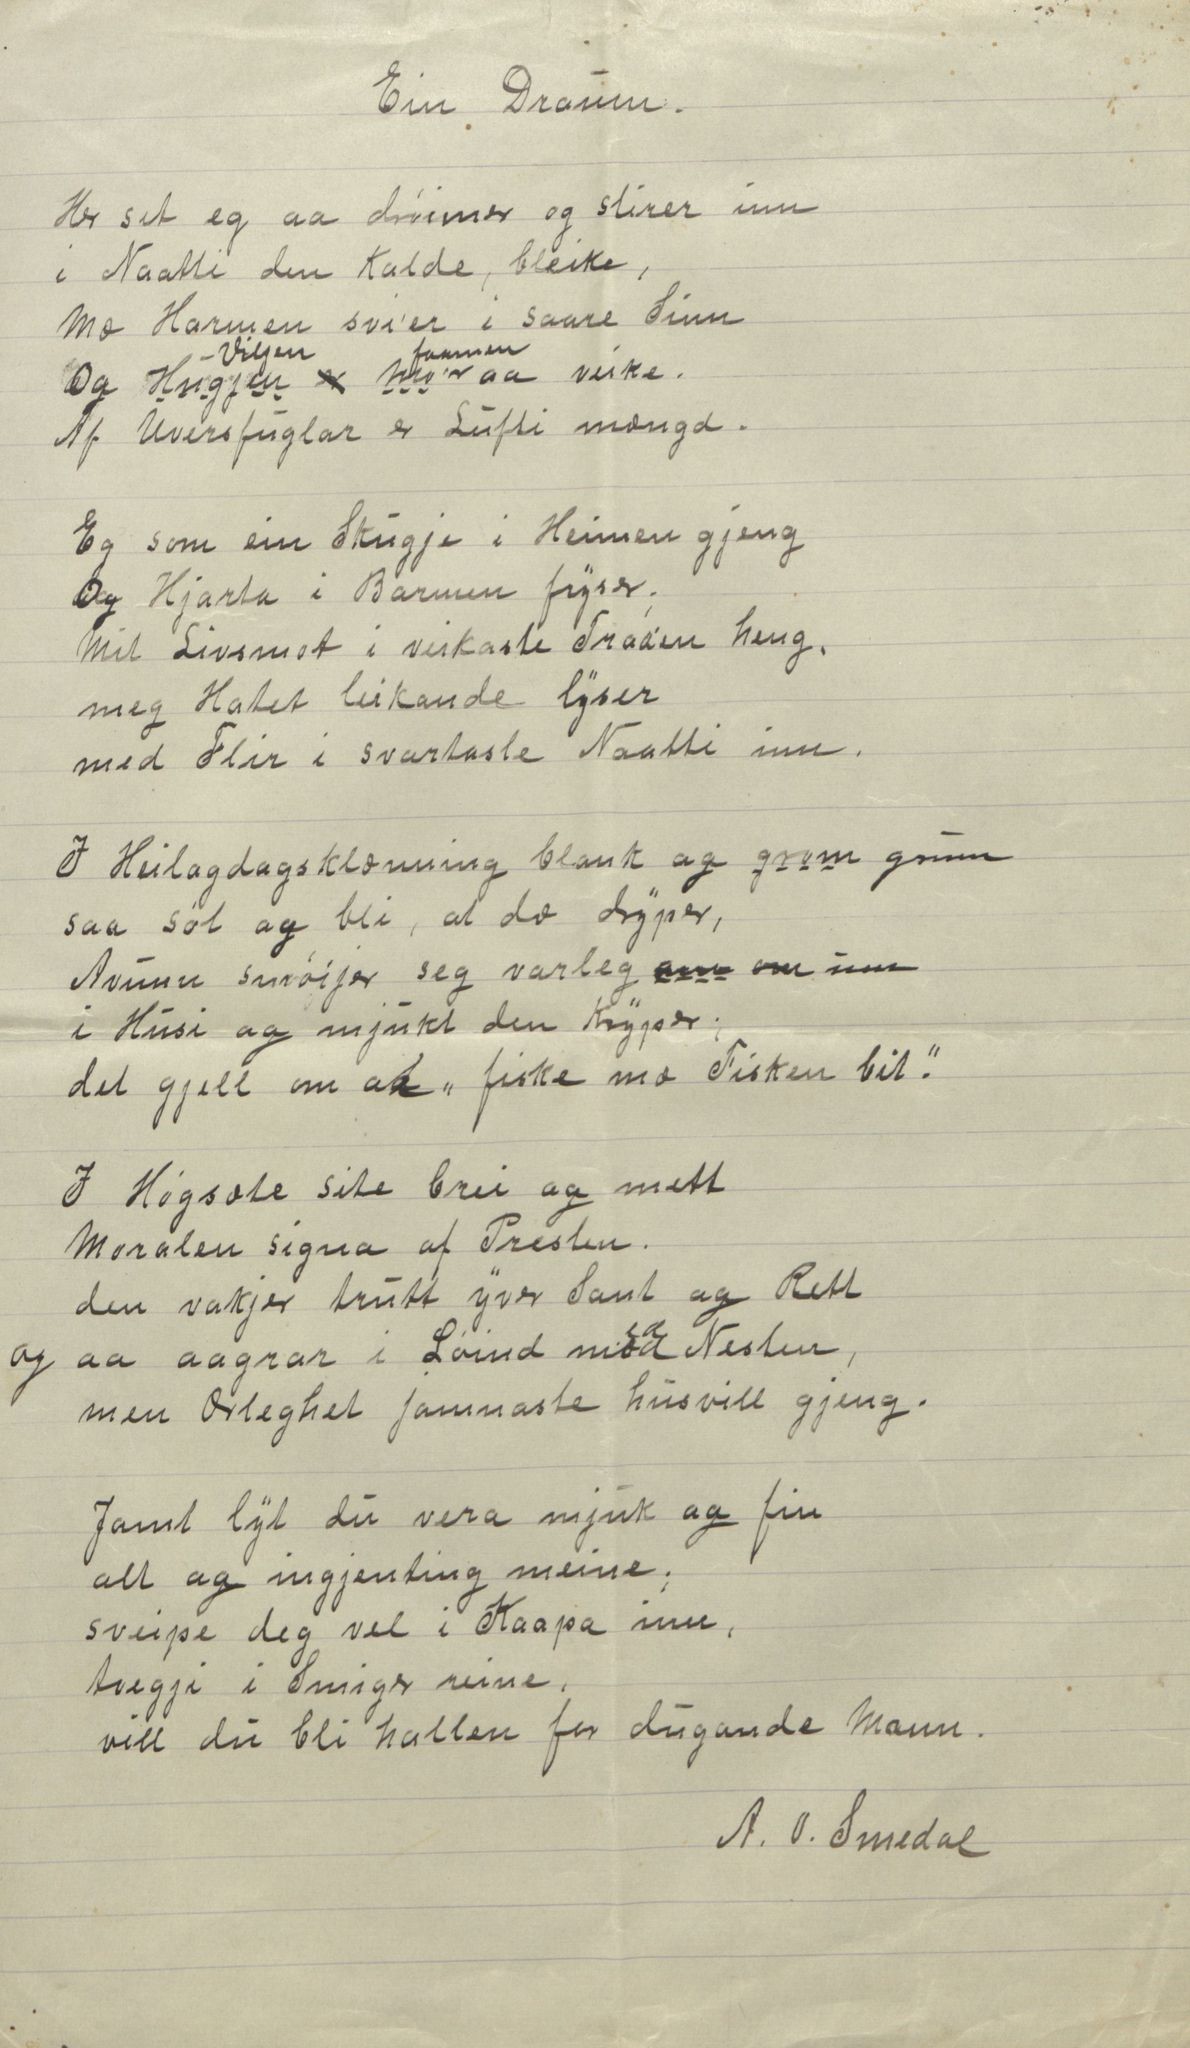 Ein Draum.
Her set eg aa drøimer og stirer inn
i Naatti den kalde, bleike,
Mæ Harmen svi'er i saare Sinn
Viljen faamen
Og Hugjen er mo'r aa veike.
Af Uversfuglar er Lufti mængd.
Eg som ein Skugje i Heimen gjeng
Og Hjarta i Barmen fryser,
Mit Livsmot i veikaste Traa'en heng,
meg Hatet leikande lyser
med Flir i svartaste Naatti inn.
I Heilagdagsklænning blank og grom grunn
saa søt og bli, at dæ dryper,
Avunn smøijer seg varleg om inn
i Husi og mjukt den kryper;
det gjell om at „fiske mæ Fisken bit."
I Høgsæte site brei og mett
Moralen signa af Presten.
den vakjer trutt yver Sant og Rett
og aa aagrar i Løind mæ sa Nesten,
men Ærleghet jamnaste husvill gjeng.
Jamt lyt du vera mjuk og fin
alt og ingjenting meine;
sveipe deg vel i Kaapa inn,
tvegji i Smiger reine,
vill du bli hallen for dugande Mann.
A. O. Smedal